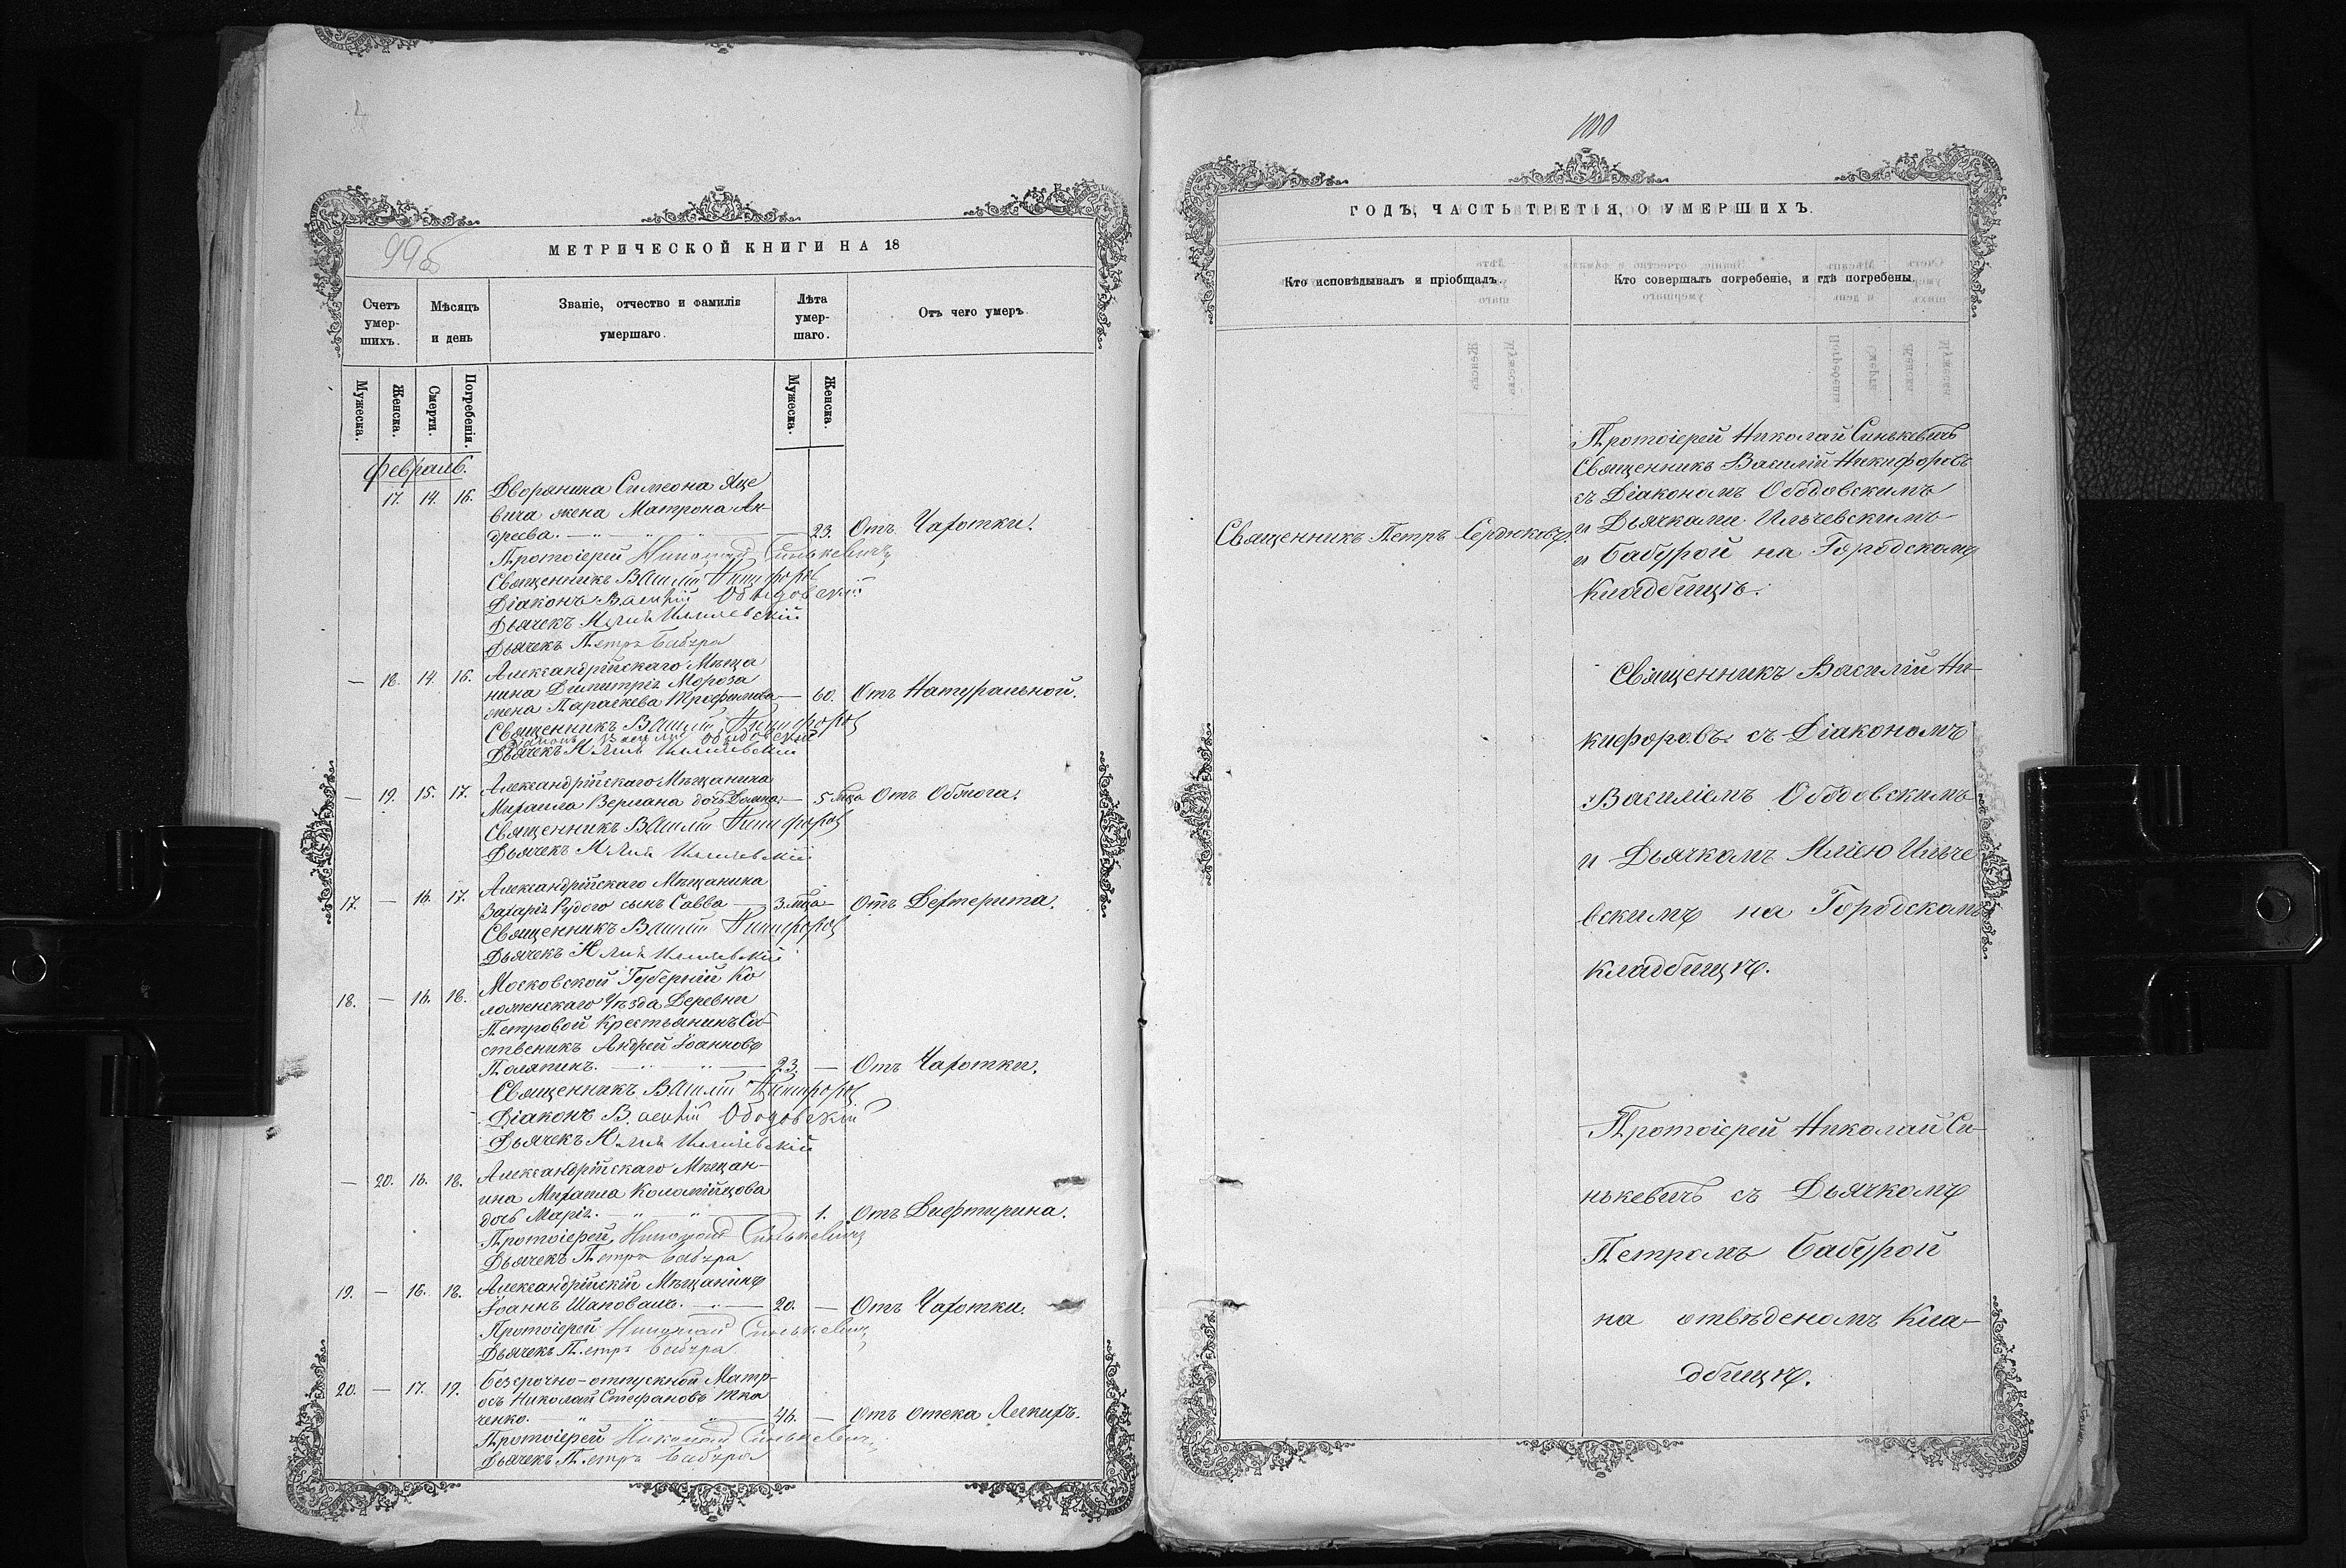 99б
МЕТРИЧЕСКОЙ КНИГИ НА 18
Счетъ умер-шихъ.
Мѣсяцъ и день
Званіе, отчество и фамилія умершаго.
Лѣта умер-шаго.
Отъ чего умеръ.
Мужеска.
Женска.
Смерти.
Погребенія.
Мужеска.
Женска.
Февраль.
17. 14. 16. Дворянина Симеона Яце
вича жена Матрона Ан-
дреева. — 23. Отъ Чахотки.
Протоіерей Николай Синькевичъ
Священникъ Василій Никифоровъ
Діаконъ Василій Ободовскій
Дьячекъ Илія Ильчевскій
Дьячекъ Петръ Бабура
— 18. 14. 16. Александрійскаго Мѣща
нина Димитрія Мороза
жена Параскева Трофимова — 60. Отъ Натуральной.
Священникъ Василій Никифоровъ
Діаконъ Василій Ободовскій
Дьячекъ Илія Ильчевскій
— 19. 15. 17. Александрійскаго Мѣщанина
Михаила Вериана дочь Домна — 5 м-ца Отъ Обмога.
Священникъ Василій Никифоровъ
Дьячекъ Илія Ильчевскій
17. — 16. 17. Александрійскаго Мѣщанина
Захарія Рудого сынъ Савва — 3 м-ца Отъ Дефтерита.
Священникъ Василій Никифоровъ
Дьячекъ Илія Ильчевскій
18. — 16. 18. Московской Губерніи Ко
ломенскаго Уѣзда Деревни
Петровой Крестьянинъ Соб-
ственикъ Андрей Іоанновъ
Поляпинъ. — 23. — Отъ Чахотки.
Священникъ Василій Никифоровъ
Діаконъ Василій Ободовскій
Дьячекъ Илія Ильчевскій
— 20. 16. 18. Александрійскаго Мѣщан-
ина Михаила Коломійцова
дочь Марія. — 1. Отъ Дифтирина.
Протоіерей Николай Синькевичъ
Дьячекъ Петръ Бабура
19. — 16. 18. Александрійскій Мѣщанинъ
Іоаннъ Шаповалъ. — 20. — Отъ Чахотки.
Протоіерей Николай Синькевичъ
Дьячекъ Петръ Бабура
20. — 17. 19. Безсрочно-отпускной Матр-
осъ Николай Стефановъ Тка
ченко. — 46. — Отъ Отека Легкихъ.
Протоіерей Николай Синькевичъ
Дьячекъ Петръ Бабура
100
ГОДЪ, ЧАСТЬ ТРЕТІЯ, О УМЕРШИХЪ.
Кто исповѣдывалъ и пріобщалъ.
Кто совершалъ погребеніе, и гдѣ погребены.
Священникъ Петръ Сердюковъ.
Протоіерей Николай Синькевичъ
Священникъ Василій Никифоровъ
съ Діакономъ Ободовскимъ
и Дьячками Ильчевскимъ
и Бабурой на Городскомъ
Кладбищѣ.
Священникъ Василій Ни-
кифоровъ съ Діакономъ
Василіемъ Ободовскимъ
и Дьячкомъ Иліею Ильче
вскимъ на Городскомъ
Кладбищѣ.
Протоіерей Николай Си-
нькевичъ съ Дьячкомъ
Петромъ Бабурой
на отвѣденомъ Кла-
дбищѣ.